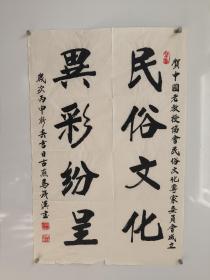 賀中國老教授協會民俗文化專家委員會成立
民俗文化
異彩紛呈
歲次丙申新春吉日古燕馬茂濱書